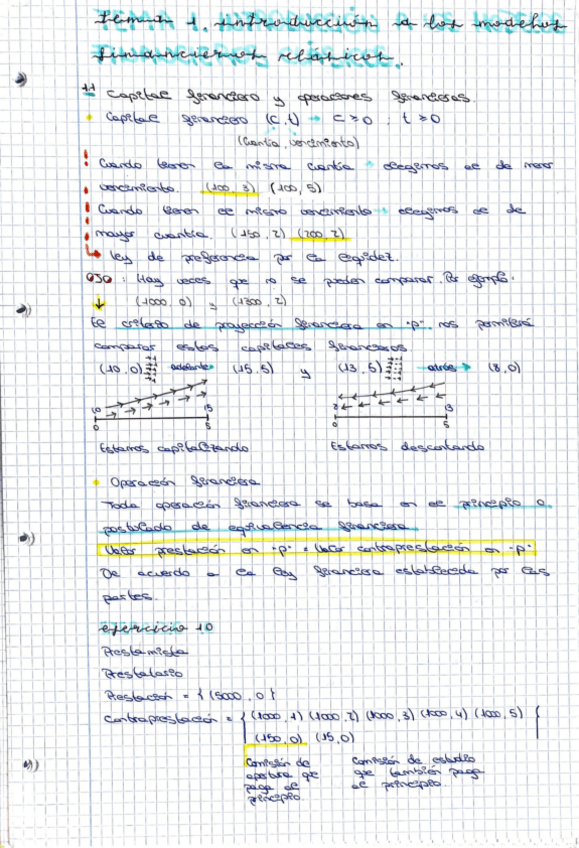 Tema 1. Introducción a los modelos
financieros clásicos.
1.1 Capital financiero y operaciones financieras.
Capital financiero (C,t) → C≥0 ; t≥0
(Cuantía, vencimiento)
Cuando tienen la misma cuantía → elegimos el de menor
vencimiento. (100, 3) (100, 5)
Cuando tienen el mismo vencimiento → elegimos el de
mayor cuantía. (150, 2) (200, 2)
Ley de preferencia por la liquidez.
OJO : Hay veces que no se pueden comparar. Por ejemplo.
(1000, 0) y (1300, 2)
El criterio de proyección financiera en "p" nos permitirá
comparar estos capitales financieros.
(10, 0) adelante → (15, 5) y (13, 5) atrás → (8, 0)
10 15 8 13
0 5 0 5
Estamos capitalizando Estamos descontando
Operación financiera
Toda operación financiera se basa en el principio o
postulado de equivalencia financiera
Valor prestación en "p" = Valor contraprestación en "p"
De acuerdo a la ley financiera establecida por las
partes.
ejercicio 10
Prestamista
Prestatario
Prestación = { (5000, 0) }
Contraprestación = { (1000, 1) (1000, 2) (1000, 3) (1000, 4) (1000, 5) }
(150, 0) (15, 0)
Comisión de Comisión de estudio
apertura que que también paga
paga al al principio.
principio.